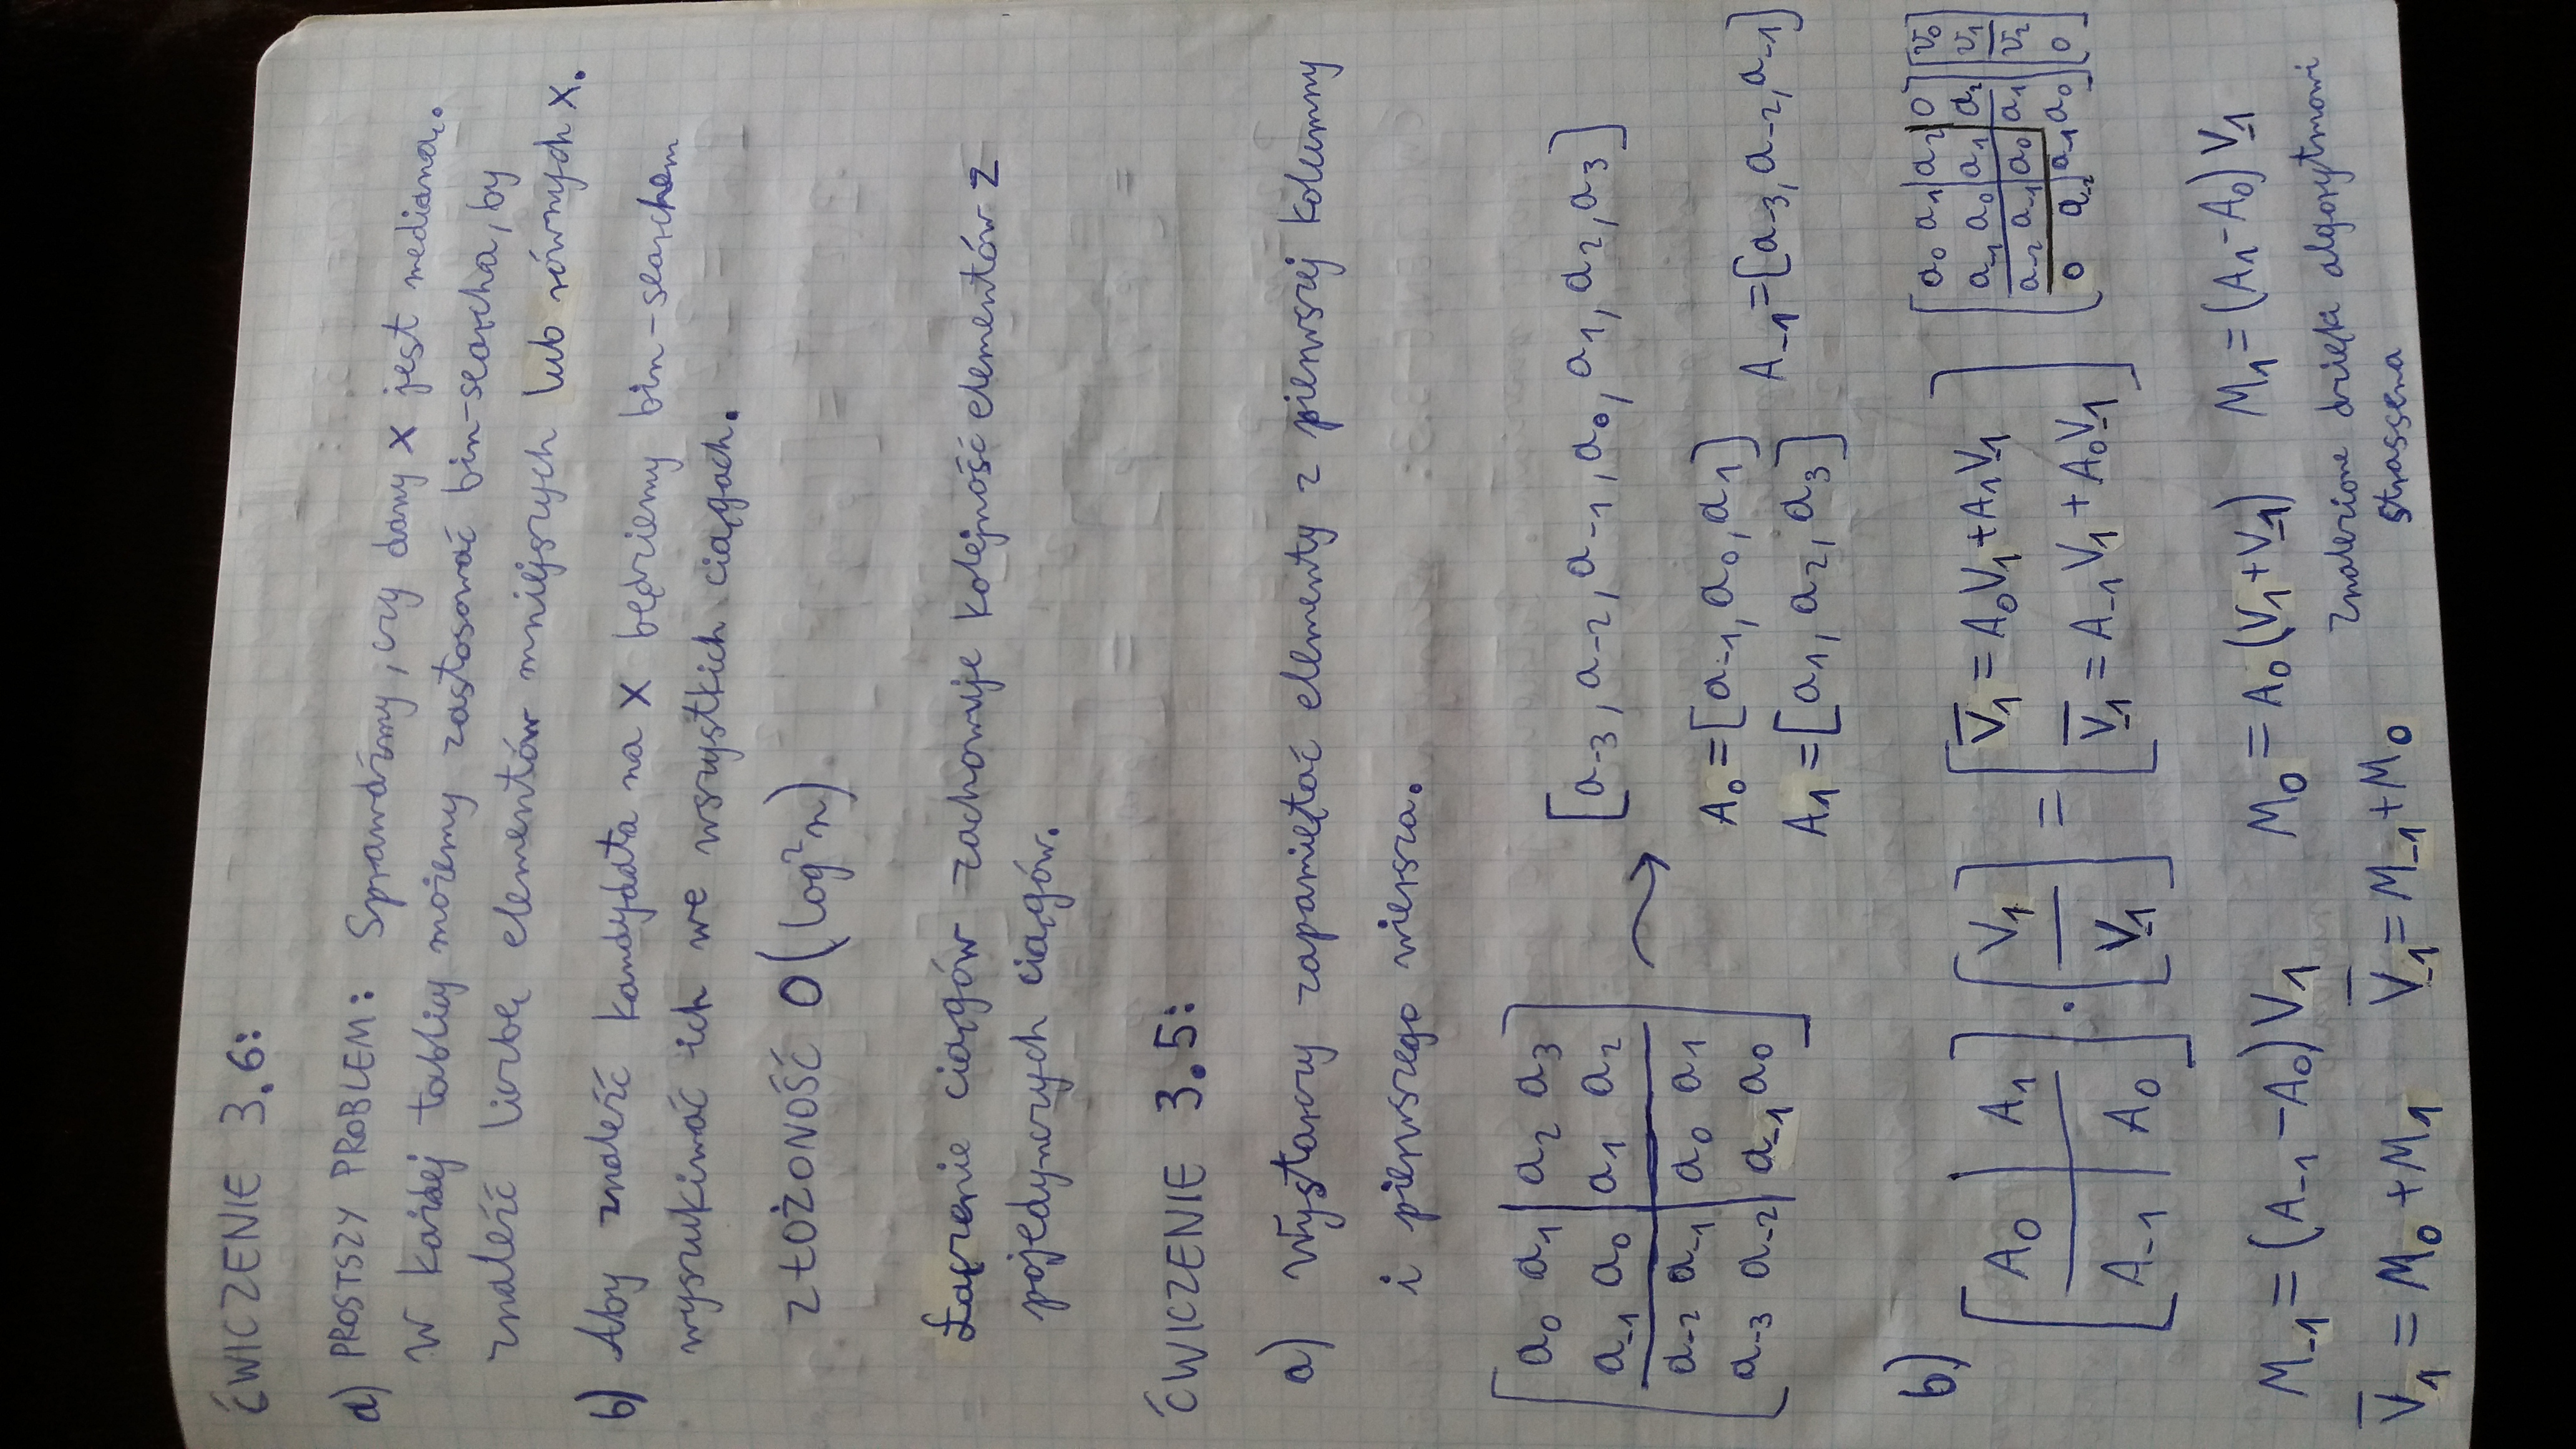 ĆWICZENIE 3.6:
a) PROSTSZY PROBLEM: Sprawdźmy, czy dany x jest medianą.
W każdej tablicy możemy zastosować bin-searcha, by
znaleźć liczbę elementów mniejszych lub równych x.
b) Aby znaleźć kandydata na x będziemy bin-searchem
wyszukiwać ich we wszystkich ciągach.
ZŁOŻONOŚĆ O(log²n)
Łączenie ciągów zachowuje kolejność elementów z
pojedynczych ciągów.
ĆWICZENIE 3.5:
a) Wystarczy zapamiętać elementy z pierwszej kolumny
i pierwszego wiersza.
a₀ a₁ | a₂ a₃
a₋₁ a₀ | a₁ a₂
a₋₂ a₋₁ | a₀ a₁
a₋₃ a₋₂ | a₋₁ a₀
[a₋₃, a₋₂, a₋₁, a₀, a₁, a₂, a₃]
A₀ = [a₋₁, a₀, a₁]
A₁ = [a₁, a₂, a₃]
A₋₁ = [a₋₃, a₋₂, a₋₁]
b)
[A₀ | A₁] · [V₁] = [V̅₁ = A₀V₁ + A₁V₋₁]
[A₋₁ | A₀] [V₋₁] [V̅₋₁ = A₋₁V₁ + A₀V₋₁]
a₀ a₁ | a₂ | 0 v₀
a₋₁ a₀ | a₁ | a₂ v₁
a₋₂ a₋₁ | a₀ | a₁ v₂
0 a₋₂ | a₋₁ a₀ 0
M₋₁ = (A₋₁ − A₀)V₁ M₀ = A₀(V₁ + V₋₁) M₁ = (A₁ − A₀)V₋₁
V̅₁ = M₀ + M₁ V̅₋₁ = M₋₁ + M₀
Znalezione dzięki algorytmowi
Strassena